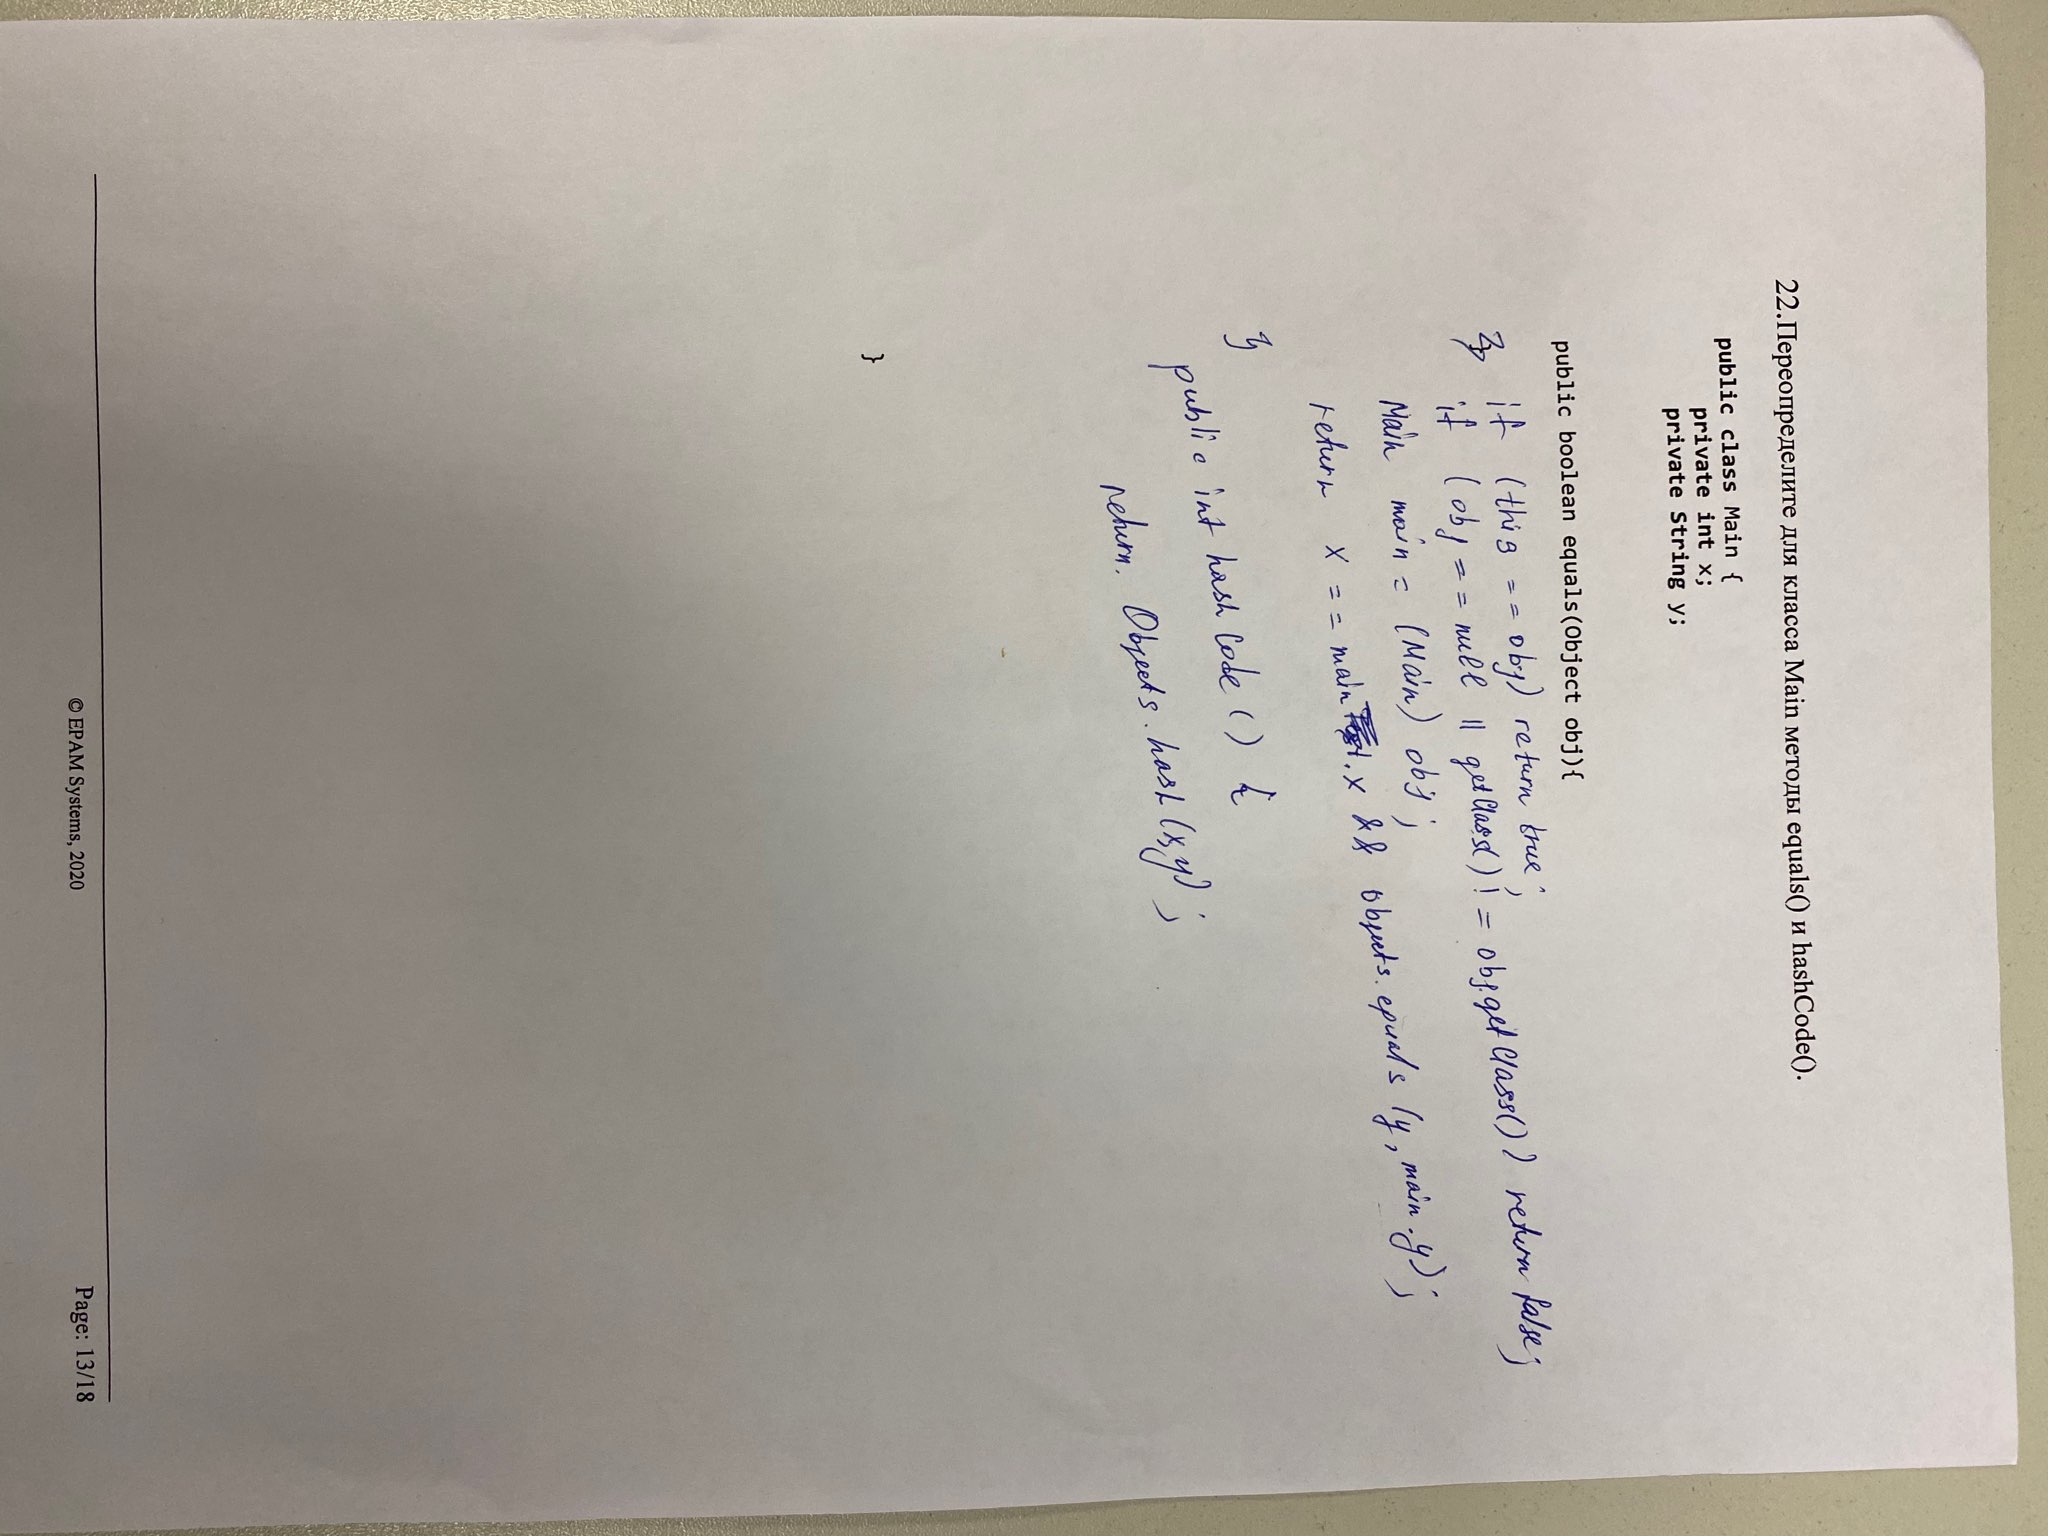 22.Переопределите для класса Main методы equals() и hashCode().
public class Main {
private int x;
private String y;
public boolean equals(Object obj){
if (this == obj) return true;
if (obj == null || getClass() != obj.getClass()) return false;
Main main = (Main) obj;
return x == main.x && objects.equals(y, main.y);
}
public int hashCode() {
return. Objects.hash(x,y);
}
© EPAM Systems, 2020
Page: 13/18